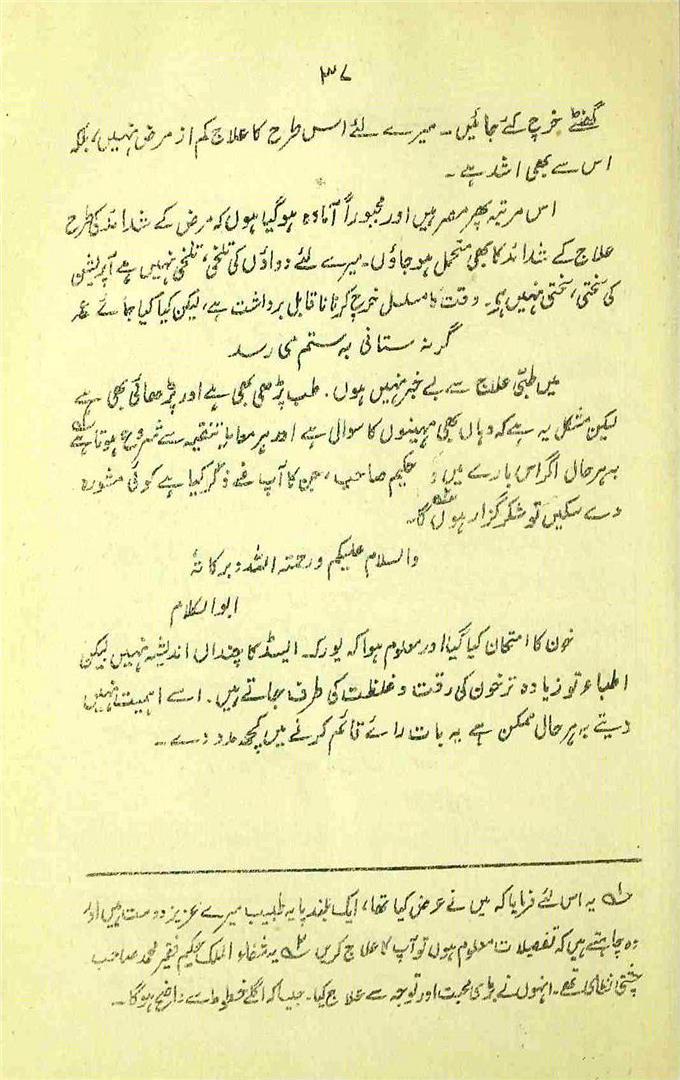 ۳۷
گھنٹے خرچ کئے جائیں۔ میرے لئے اس طرح کا علاج کم از مرض نہیں، بلکہ
اس سے بھی اشد ہے۔
اس مرتبہ پھر مصر ہیں اور مجبوراً آمادہ ہوگیا ہوں کہ مرض کے شدائد کی طرح
علاج کے شدائد کا بھی متحمل ہو جاؤں۔ میرے لئے دواؤں کی تلخی، تلخی نہیں ہے آپریشن
کی سختی، سختی نہیں ہے۔ وقت کا مسلسل خرچ کرنا ناقابل برداشت ہے، لیکن کیا کیا جائے ع
گر نہ ستانی بہ ستم می رسد
میں طبّی علاج سے بے خبر نہیں ہوں۔ طب پڑھی بھی ہے اور پڑھائی بھی ہے
لیکن مشکل یہ ہے کہ وہاں بھی مہینوں کا سوال ہے اور ہر معاملہ تنقیہ سے شروع ہوتا ہے ۱ے
بہرحال اگر اس بارے میں وہ حکیم صاحب، جن کا آپ نے ذکر کیا ہے کوئی مشورہ
دے سکیں تو شکر گزار ہوں ۲ے گا۔
والسلام علیکم ورحمتہ اللہ وبرکاتہ
ابوالکلام
خون کا امتحان کیا گیا اور معلوم ہوا کہ یورک۔ ایسڈ کا چنداں اندیشہ نہیں لیکن
اطباء تو زیادہ تر خون کی رقت و غلظت کی طرف جاتے ہیں۔ اسے اہمیت نہیں
دیتے بہرحال ممکن ہے یہ بات رائے قائم کرنے میں کچھ مدد دے۔
۱ے یہ اس لئے فرمایا کہ میں نے عرض کیا تھا، ایک بلند پایہ طبیب میرے عزیز دوست ہیں اور
وہ چاہتے ہیں کہ تفصیلات معلوم ہوں تو آپ کا علاج کریں ۲ے یہ شفاء الملک حکیم فقیر محمد صاحب
چشتی نظامی تھے۔ انہوں نے بڑی محبت اور توجہ سے علاج کیا۔ جیسا کہ اگلے خطوط سے واضح ہوگا۔